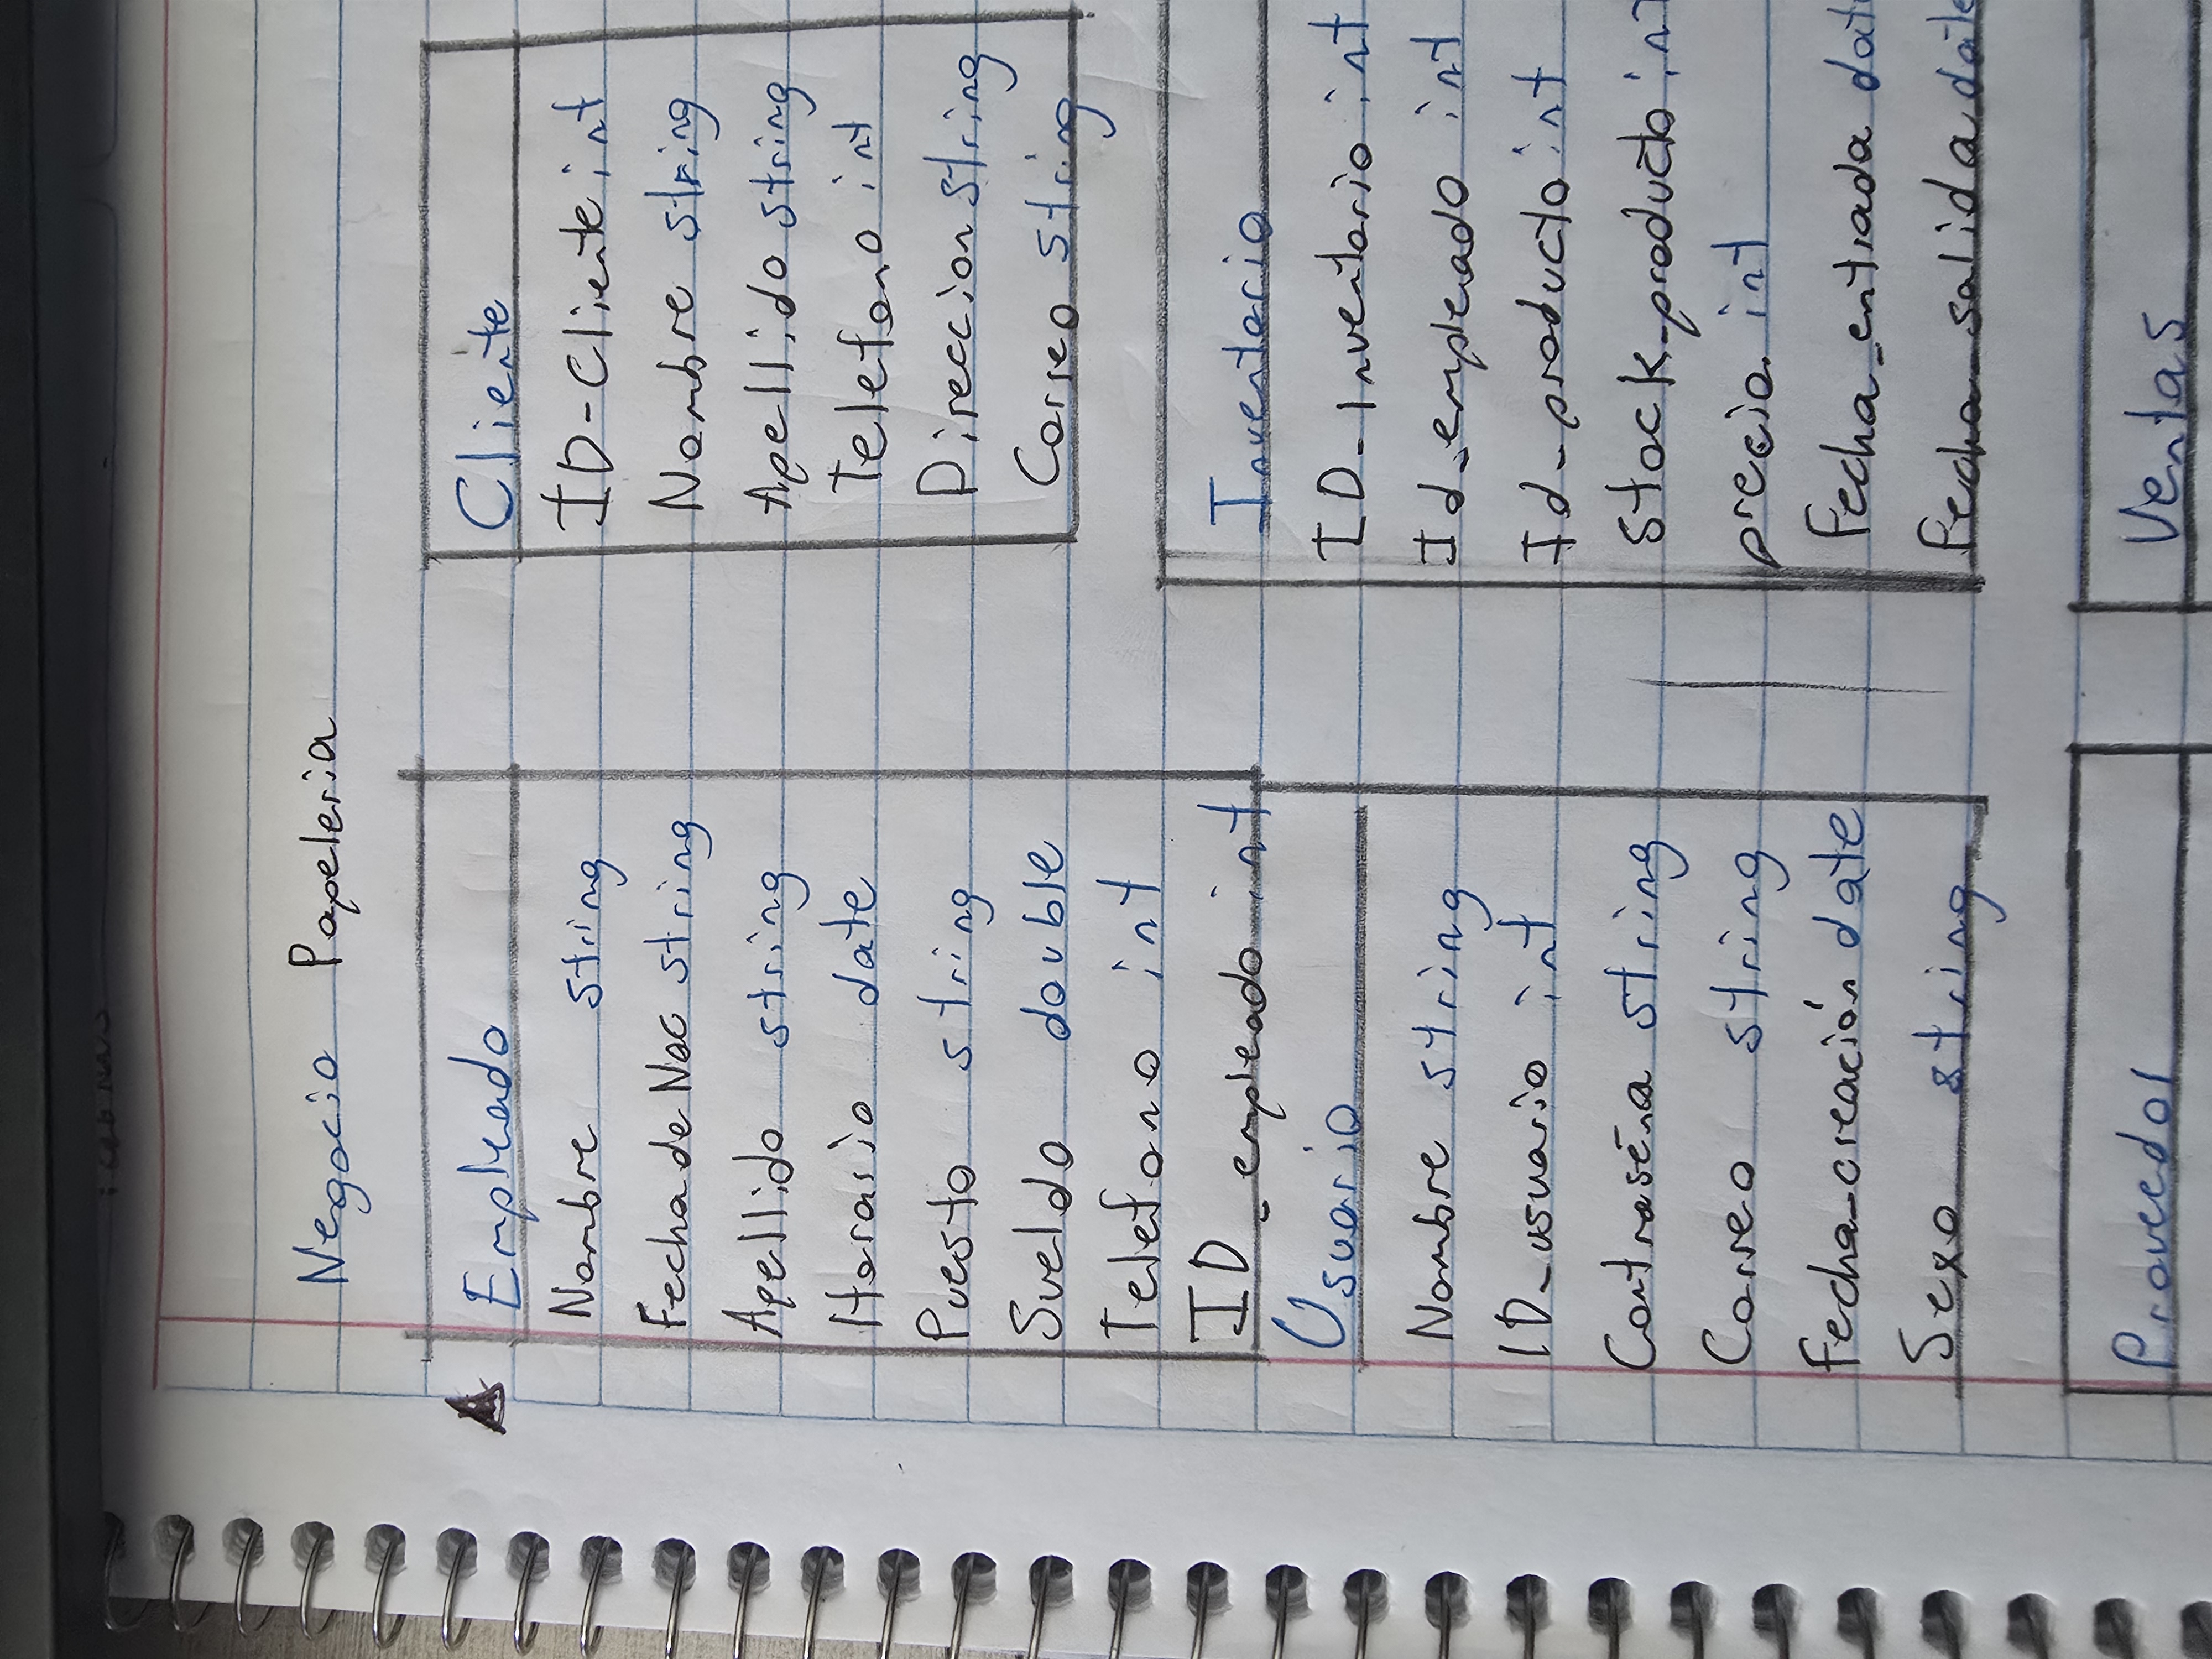 Negocio Papeleria
Empleado
Nombre string
Fecha de Nac string
Apellido string
Horario date
Puesto string
Sueldo double
Telefono int
ID_empleado int
Usuario
Nombre string
ID_usuario int
Contraseña string
Correo string
Fecha_creación date
Sexo string
Proveedor
Cliente
ID-Cliente int
Nombre string
Apellido string
Telefono int
Direccion string
Correo string
Inventario
ID_Inventario int
Id_empleado int
Id_producto int
Stock_producto int
precio. int
Fecha_entrada dat
Fecha_salida date
Ventas